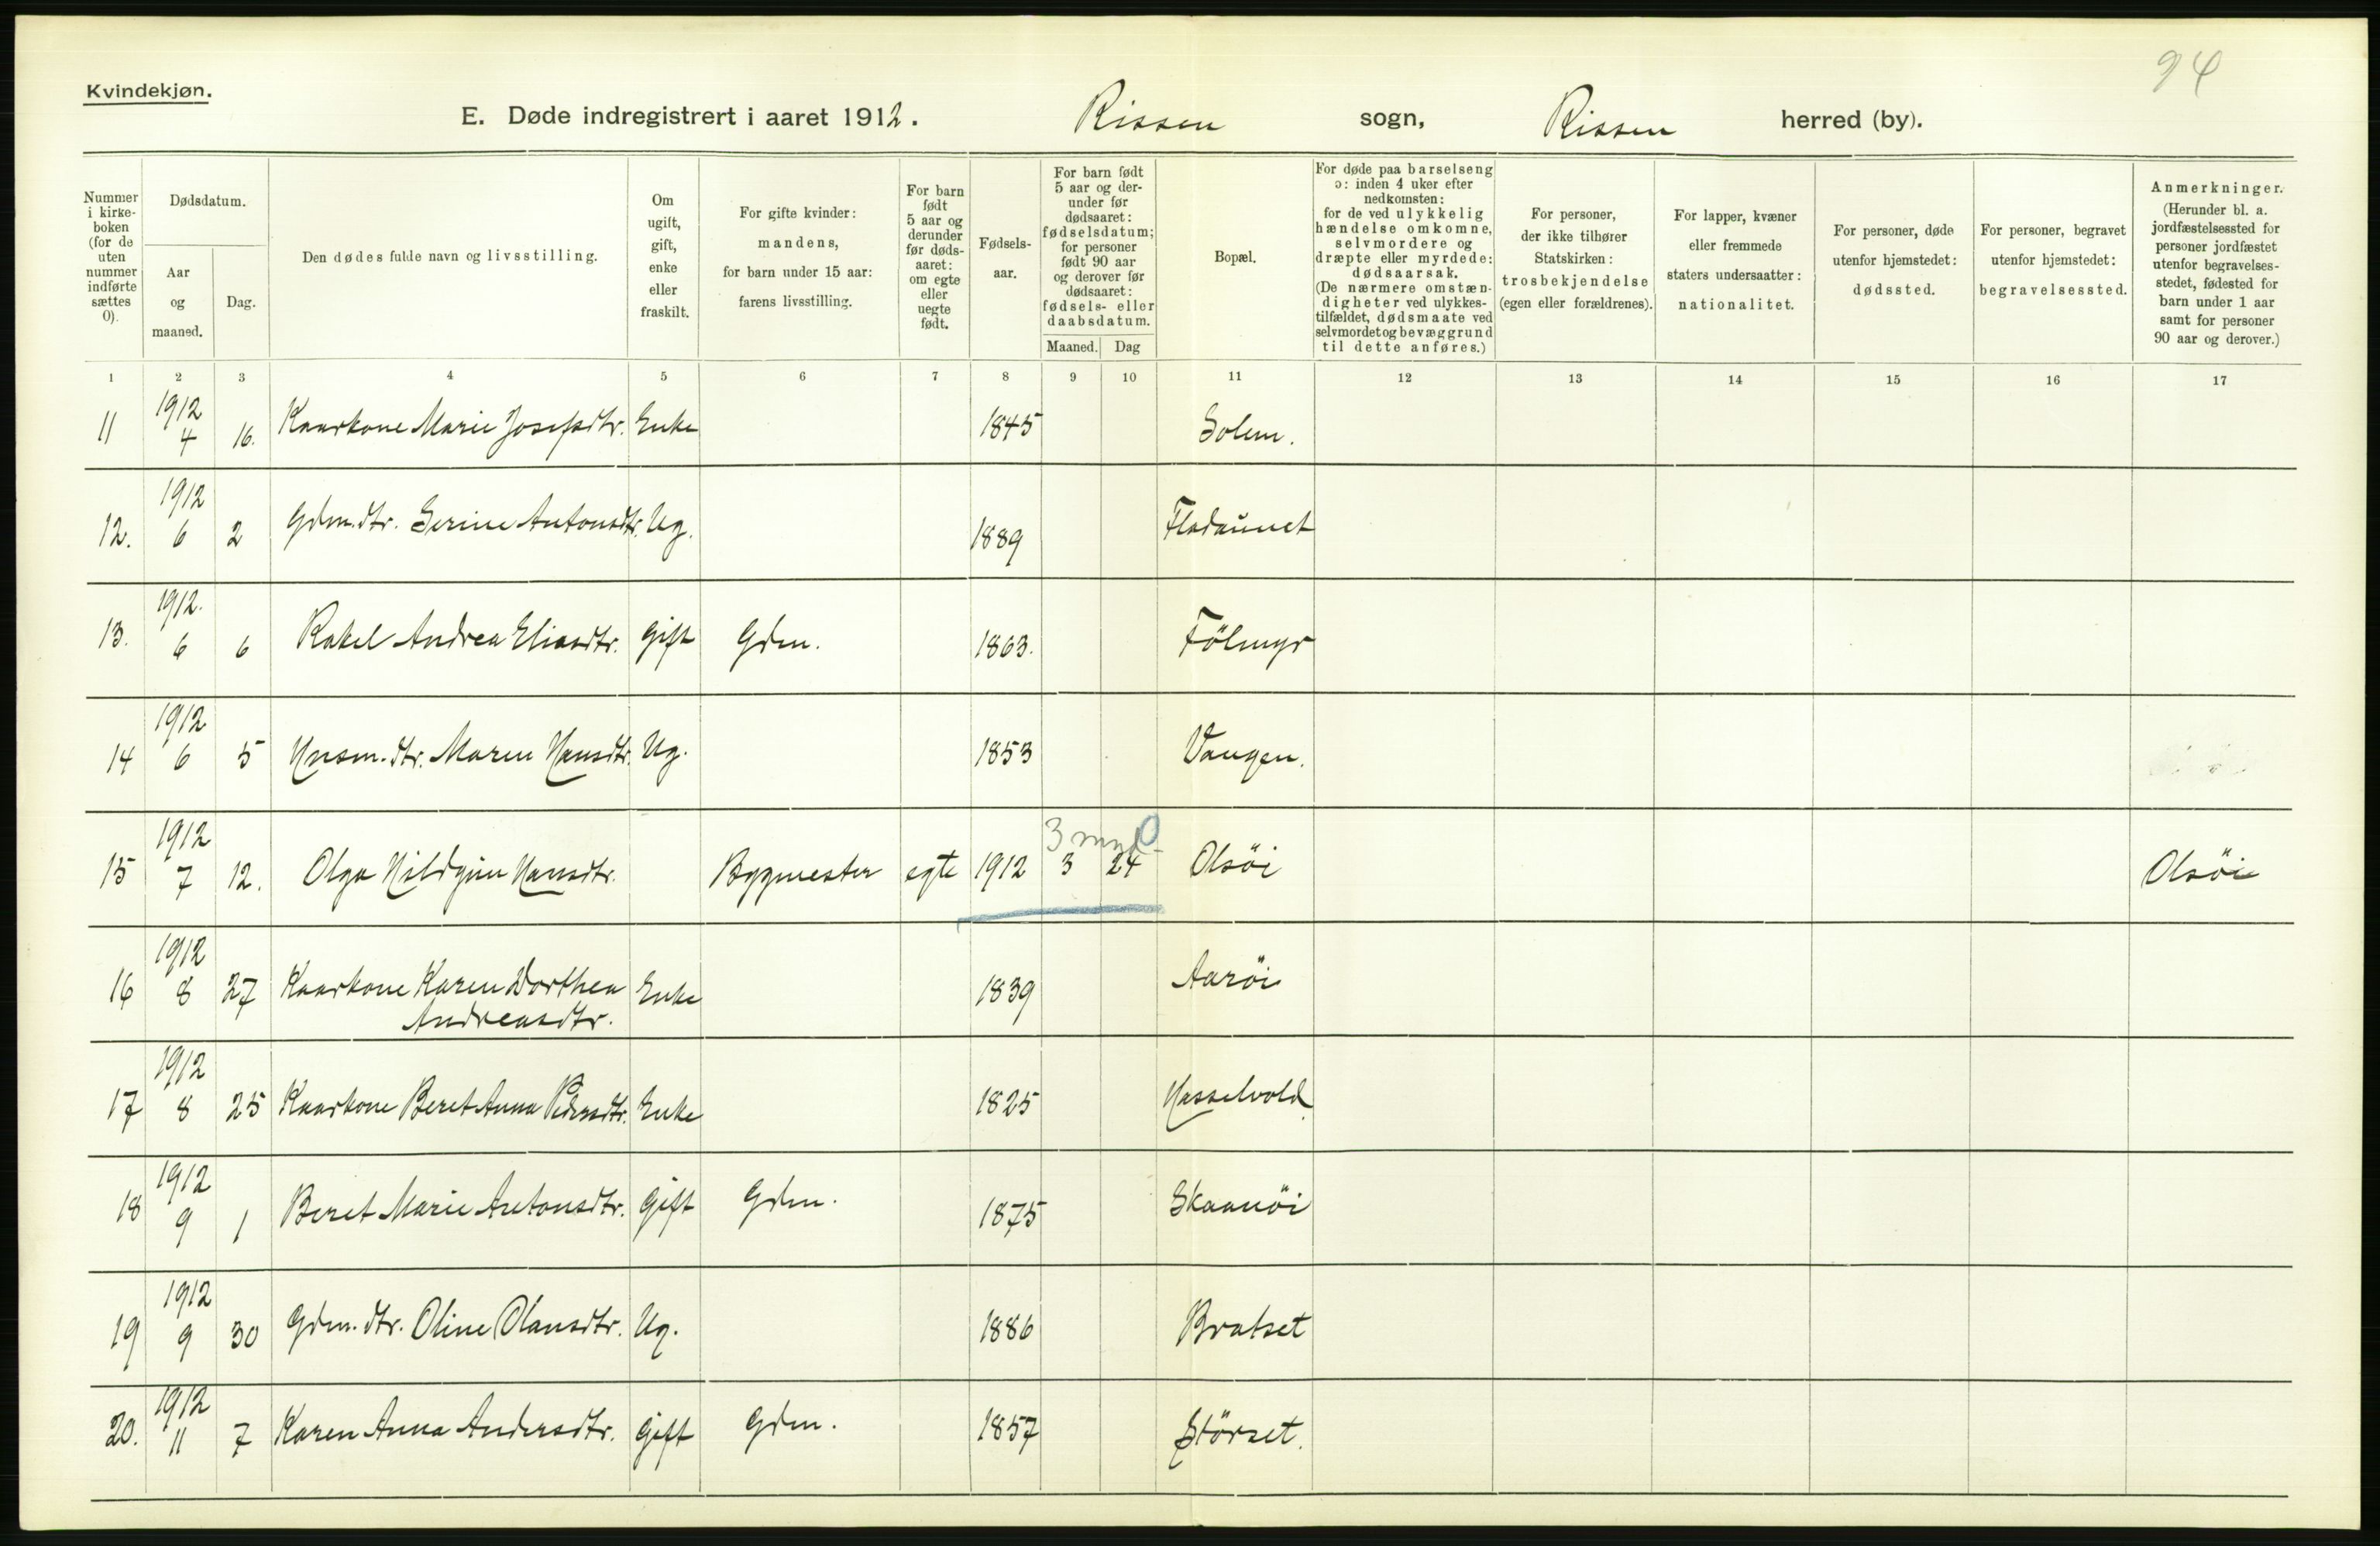 94
Kvindekjøn.
E. Døde indregistrert i aaret 1912. Rissen sogn, Rissen herred (by).
Nummer i kirke- boken (for de uten nummer indførte sættes 0).
Dødsdatum.
Aar og maaned.
Dag.
Den dødes fulde navn og livsstilling.
Om ugift, gift, enke eller fraskilt.
For gifte kvinder: mandens, for barn under 15 aar: farens livsstilling.
For barn født 5 aar og derunder før døds- aaret: om egte eller uegte født.
Fødsels- aar.
For barn født 5 aar og der- under før dødsaaret: fødselsdatum; for personer født 90 aar og derover før dødsaaret: fødsels- eller daabsdatum.
Maaned. Dag
Bopæl.
For døde paa barselseng ɔ: inden 4 uker efter nedkomsten: for de ved ulykkelig hændelse omkomne, selvmordere og dræpte eller myrdede: dødsaarsak. (De nærmere omstæn- digheter ved ulykkes- tilfældet, dødsmaate ved selvmordet og bevæggrund til dette anføres.)
For personer, der ikke tilhører Statskirken: trosbekjendelse (egen eller forældrenes).
For lapper, kvæner eller fremmede staters undersaatter: nationalitet.
For personer, døde utenfor hjemstedet: dødssted.
For personer, begravet utenfor hjemstedet: begravelsessted.
Anmerkninger. (Herunder bl. a. jordfæstelsessted for personer jordfæstet utenfor begravelses- stedet, fødested for barn under 1 aar samt for personer 90 aar og derover.)
1 2 3 4 5 6 7 8 9 10 11 12 13 14 15 16 17
11 1912 4 16. Kaarkone Marie Josefsdtr. Enke 1845 Solem.
12. 1912 6 2 Gdm. dtr. Serine Antonsdtr. Ug. 1889 Fladaunet
13. 1912. 6 6 Rakel Andrea Eliasdtr. gift Gdm. 1863. Fölmyr
14 1912 6 5 Husm. dtr. Maren Hansdtr. Ug. 1853 Vangen.
3 mnd 0
15 1912 7 12. Olga Hildgun Hansdtr. Bygmester egte 1912 3 24 Olsöi Olsöi
16 1912 8 27 Kaarkone Karen Dorthea Enke 1839 Aaröi
Andreasdtr.
17 1912 8 25 Kaarkone Beret Anna Pedersdtr. Enke 1825 Hasselvold.
18 1912 9 1 Beret Marie Antonsdtr. Gift Gdm. 1875 Skaanöi
19 1912 9 30 Gdm. dtr. Oline Olausdtr. Ug. 1886 Bratset
20. 1912 11 7 Karen Anna Andersdtr. Gift Gdm. 1857 Störset.